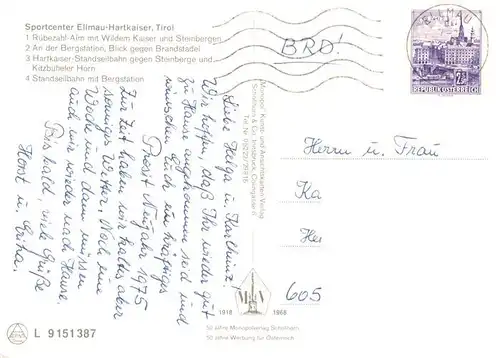 Sportcenter Ellmau-Hartkaiser, Tirol
1 Rübezahl-Alm mit Wildem Kaiser und Steinbergen
2 An der Bergstation, Blick gegen Brandstadel
3 Hartkaiser-Standseilbahn gegen Steinberge und
Kitzbüheler Horn
4 Standseilbahn mit Bergstation
BRD!
ELLMAU
2 S
REPUBLIK ÖSTERREICH
Liebe Helga u. Karlheinz!
Wir hoffen, daß Ihr wieder gut
zu Hause angekommen seid und
wünschen Euch ein kräftiges
Prost Neujahr 1975
Zur Zeit haben wir kaltes aber
sonniges Wetter. Noch eine
Woche und dann müssen
auch wir wieder nach Hause.
Bis bald, viele Grüße
Horst u.
Monopol, Kunst- und Ansichtskarten-Verlag
Schöllhorn & Co., Innsbruck,
Tel. Nr.
Herrn u. Frau
Ka
He
605
1918 1968
50 Jahre Monopolverlag Schöllhorn
50 Jahre Werbung für Österreich
L 9151387